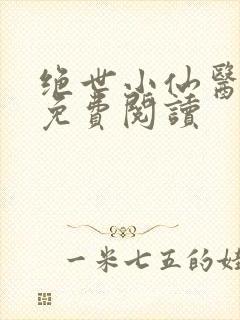 绝世小仙醫
免費閱讀
一米七五的娃